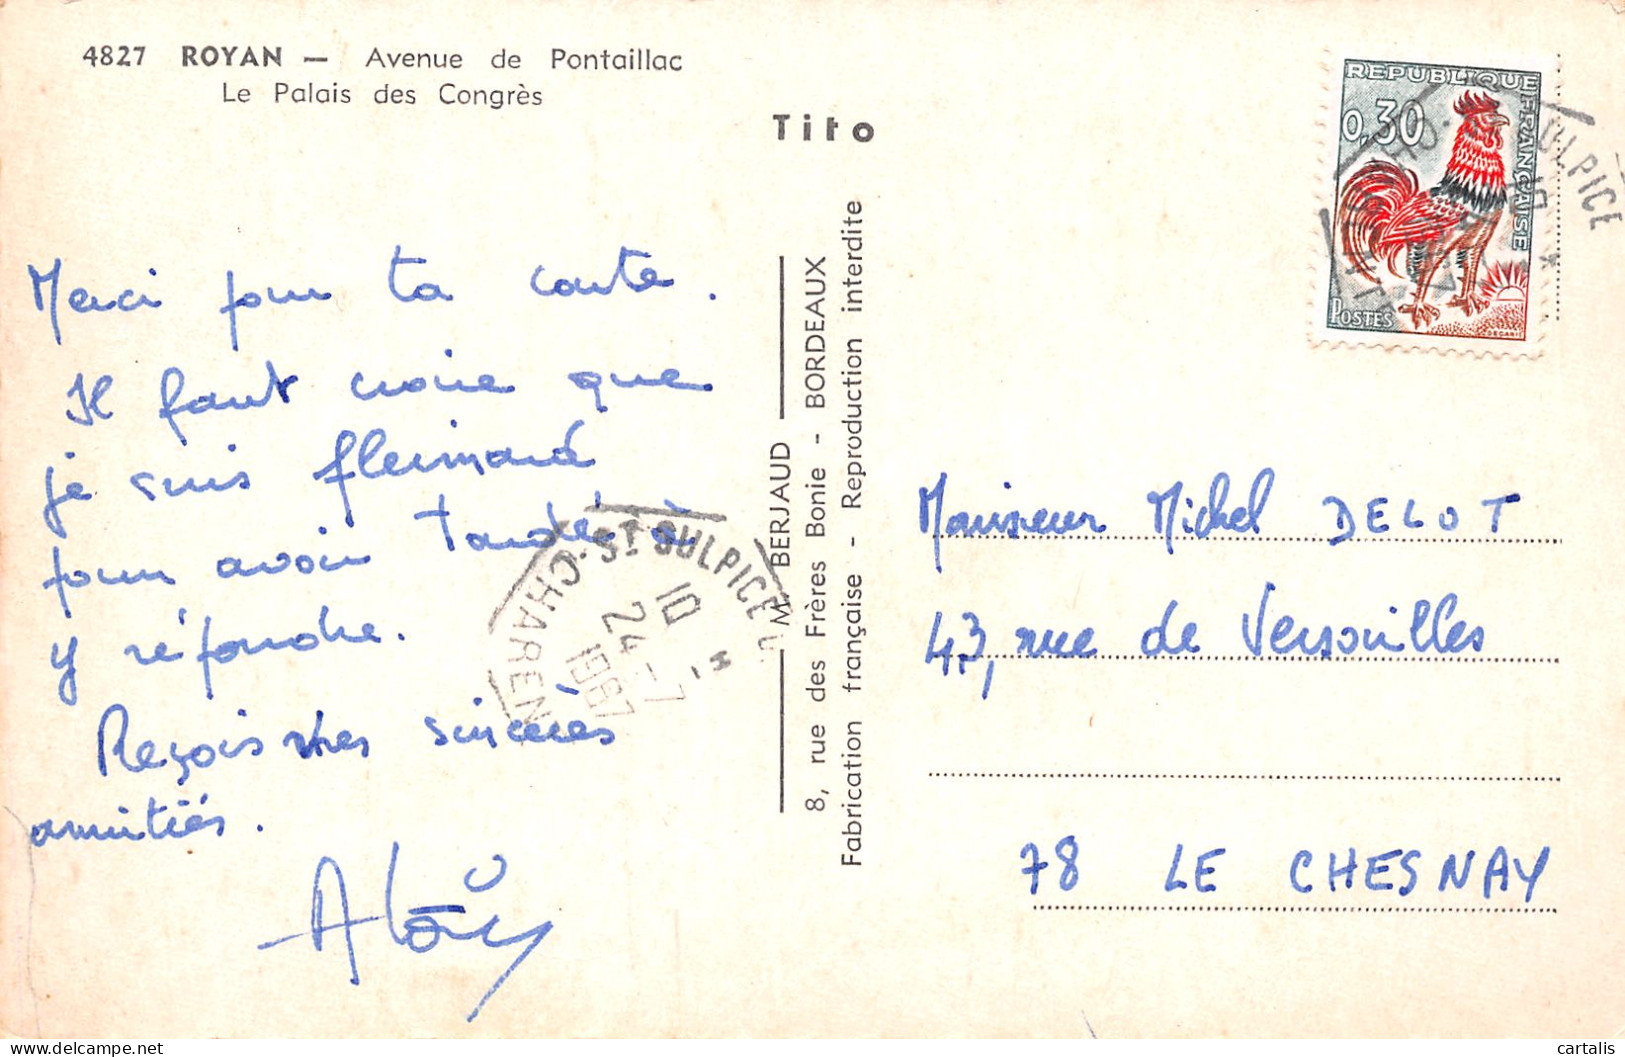 4827 ROYAN — Avenue de Pontaillac
Le Palais des Congrès
Tito
Merci pour ta carte.
Il faut croire que
je suis flemmard
pour avoir tardé à
y répondre.
Reçois mes sincères
amitiés.
M. BERJAUD
8, rue des Frères Bonie - BORDEAUX
Fabrication française - Reproduction interdite
ST SULPICE
CHAREN
10 H
24-7
1967
REPUBLIQUE FRANÇAISE
0,30
POSTES
DECARIS
ULPICE
Monsieur Michel DELOT
43, rue de Versailles
78 LE CHESNAY
cartalis